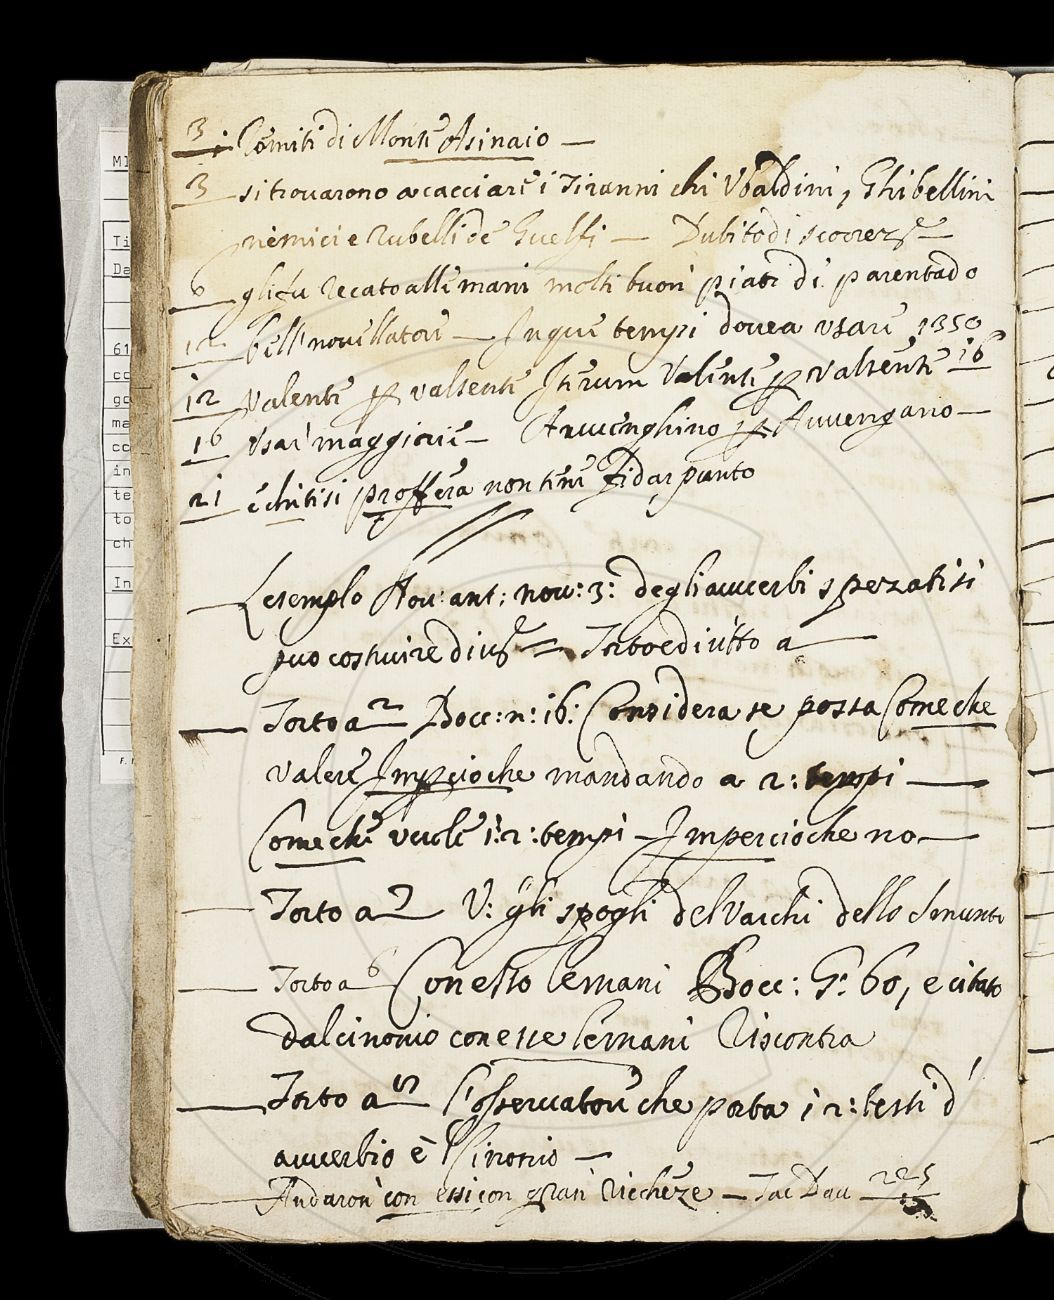 3 Comiti di Monte Asinaio —
3 si trouarono a cacciare i Tiranni chi Vbaldini, Ghibellini
nemici e Rubelli de Guelfi — Dubito di
6 gli fu recato alle mani molti buoni piati di parentado
12 bell nouellatore — In que tempi douea vsare 1350
12 Valente p valsente Iterum Valente p valsente 16
16 Vsar maggiorie — Auuenghino p Auuengano —
21 e chi ti si proffera non tene fidar punto
— Lesemplo Nou: ant: nou: 3: degli auuerbi spezati si
puo costruire = Torto e diritto a
— Torto a 2 Bocc: n: 16: Considera se possa Comeche
valere Impercioche mandando a 2: tempi —
Comeche vuole i: 2: tempi — Impercioche no —
— Torto a 2 V: gli spogli del Varchi dello Smunto
— Torto a 6 Con esso le mani Bocc: G: 60, e citato
dal cinonio con esse le mani Riscontra
— Torto a l'osseruatore che porta i 2: testi d'
auuerbio è il Cinonio —
— Andaron con essi con gran Richeze — Iac Dau 225
MI
Ti
Da
61
cc
go
ma
cc
in
te
to
ch
In
Ex